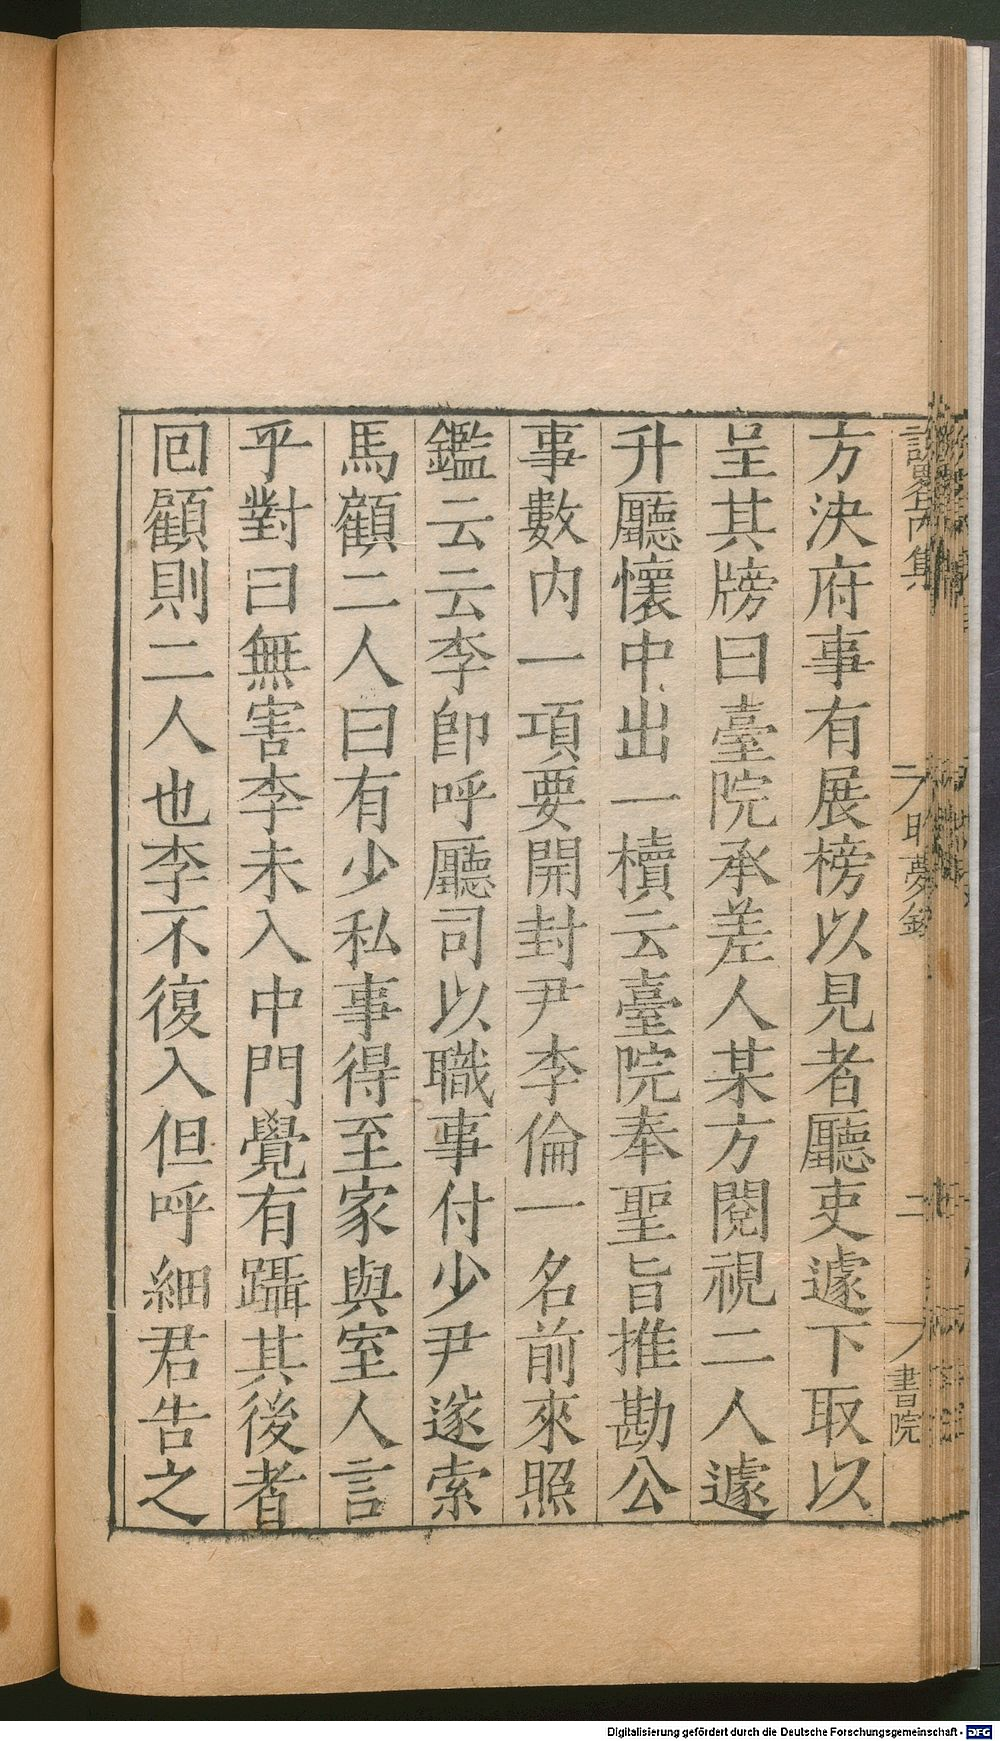 方決府事有展榜以見者廳吏遽下取以
呈其牓曰臺院承差人某方閱視二人遽
升廳懷中出一櫝云臺院奉聖旨推勘公
事數内一項要開封尹李倫一名前來照
鑑云云李卽呼廳司以職事付少尹遂索
馬顧二人曰有少私事得至家與室人言
乎對曰無害李未入中門覺有躡其後者
囘顧則二人也李不復入但呼細君告之
二
書院
Digitalisierung gefördert durch die Deutsche Forschungsgemeinschaft - DFG